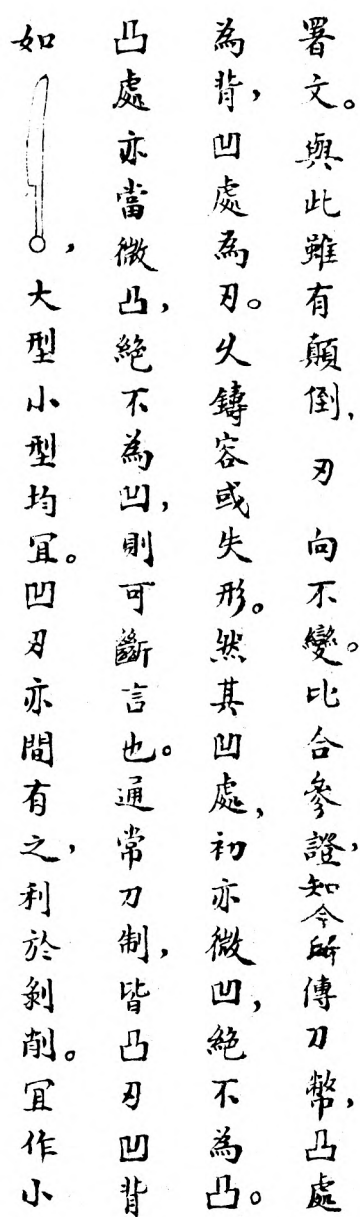 署文。與此雖有顛倒，刃向不變。比合參證，知今所傳刀幣，凸處
為背，凹處為刃。久鑄容或失形。然其凹處，初亦微凹，絕不為凸。
凸處亦當微凸，絕不為凹，則可斷言也。通常刀制，皆凸刃凹背
如，大型小型均宜。凹刃亦間有之，利於剝削。宜作小